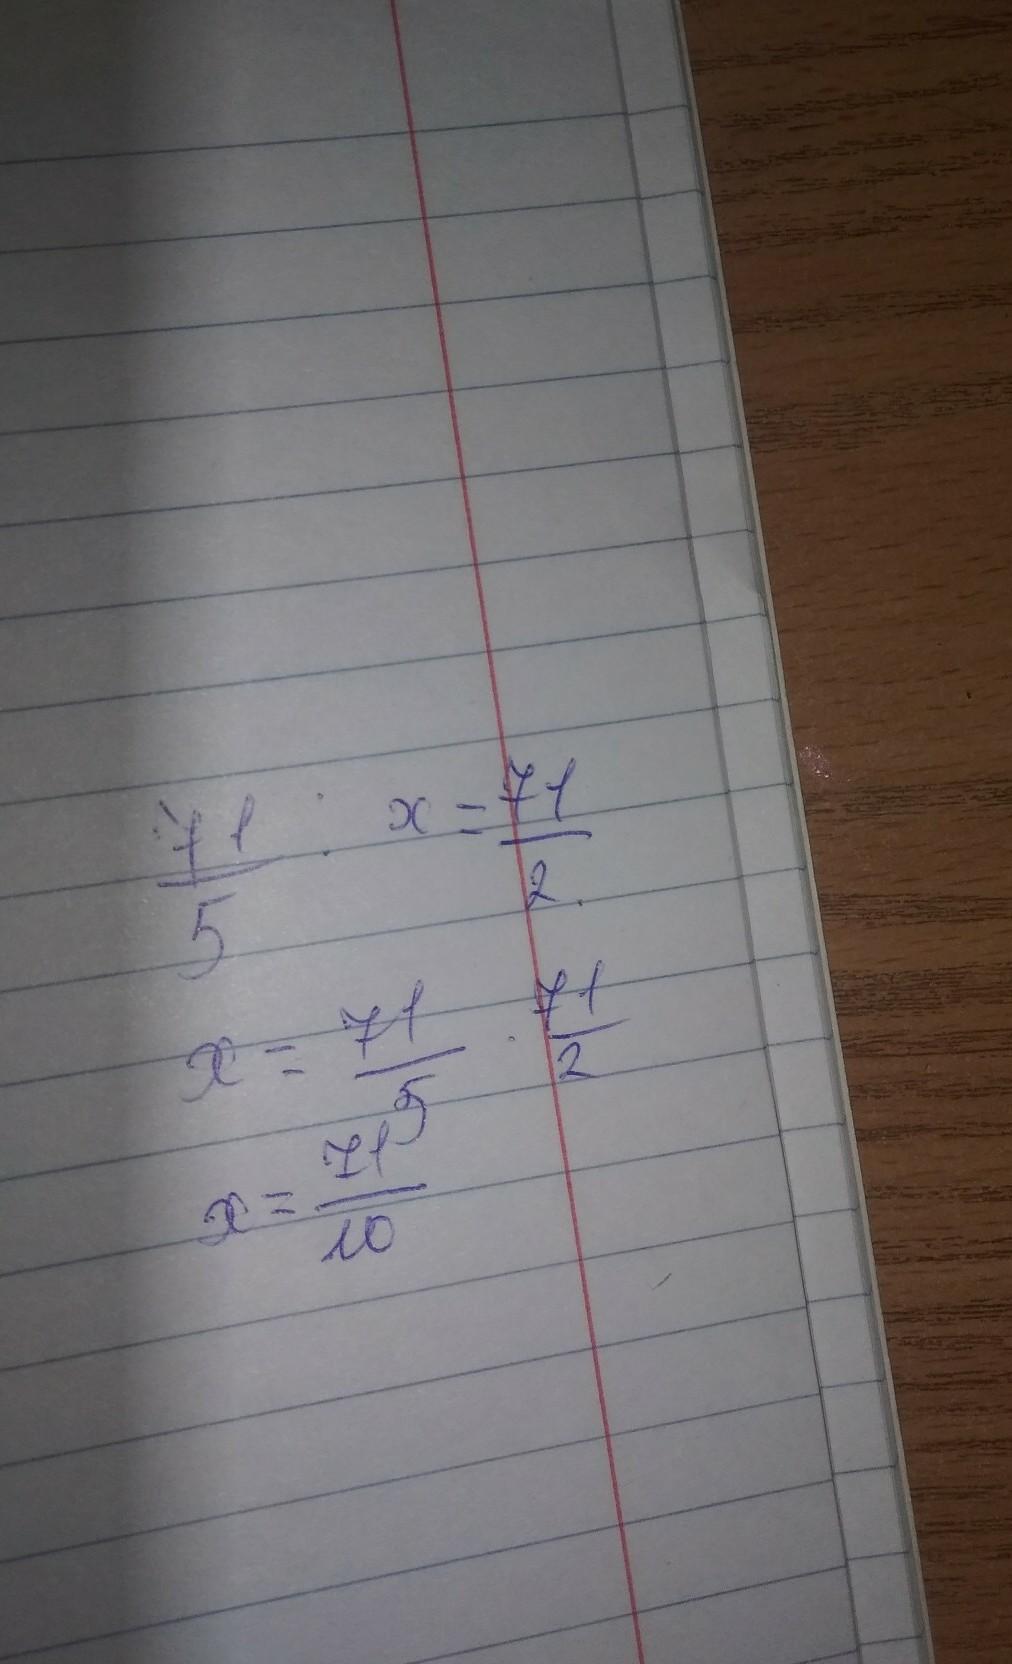 71/5 : x = 71/2.
x = 71/5 · 71/2
x = 71/10